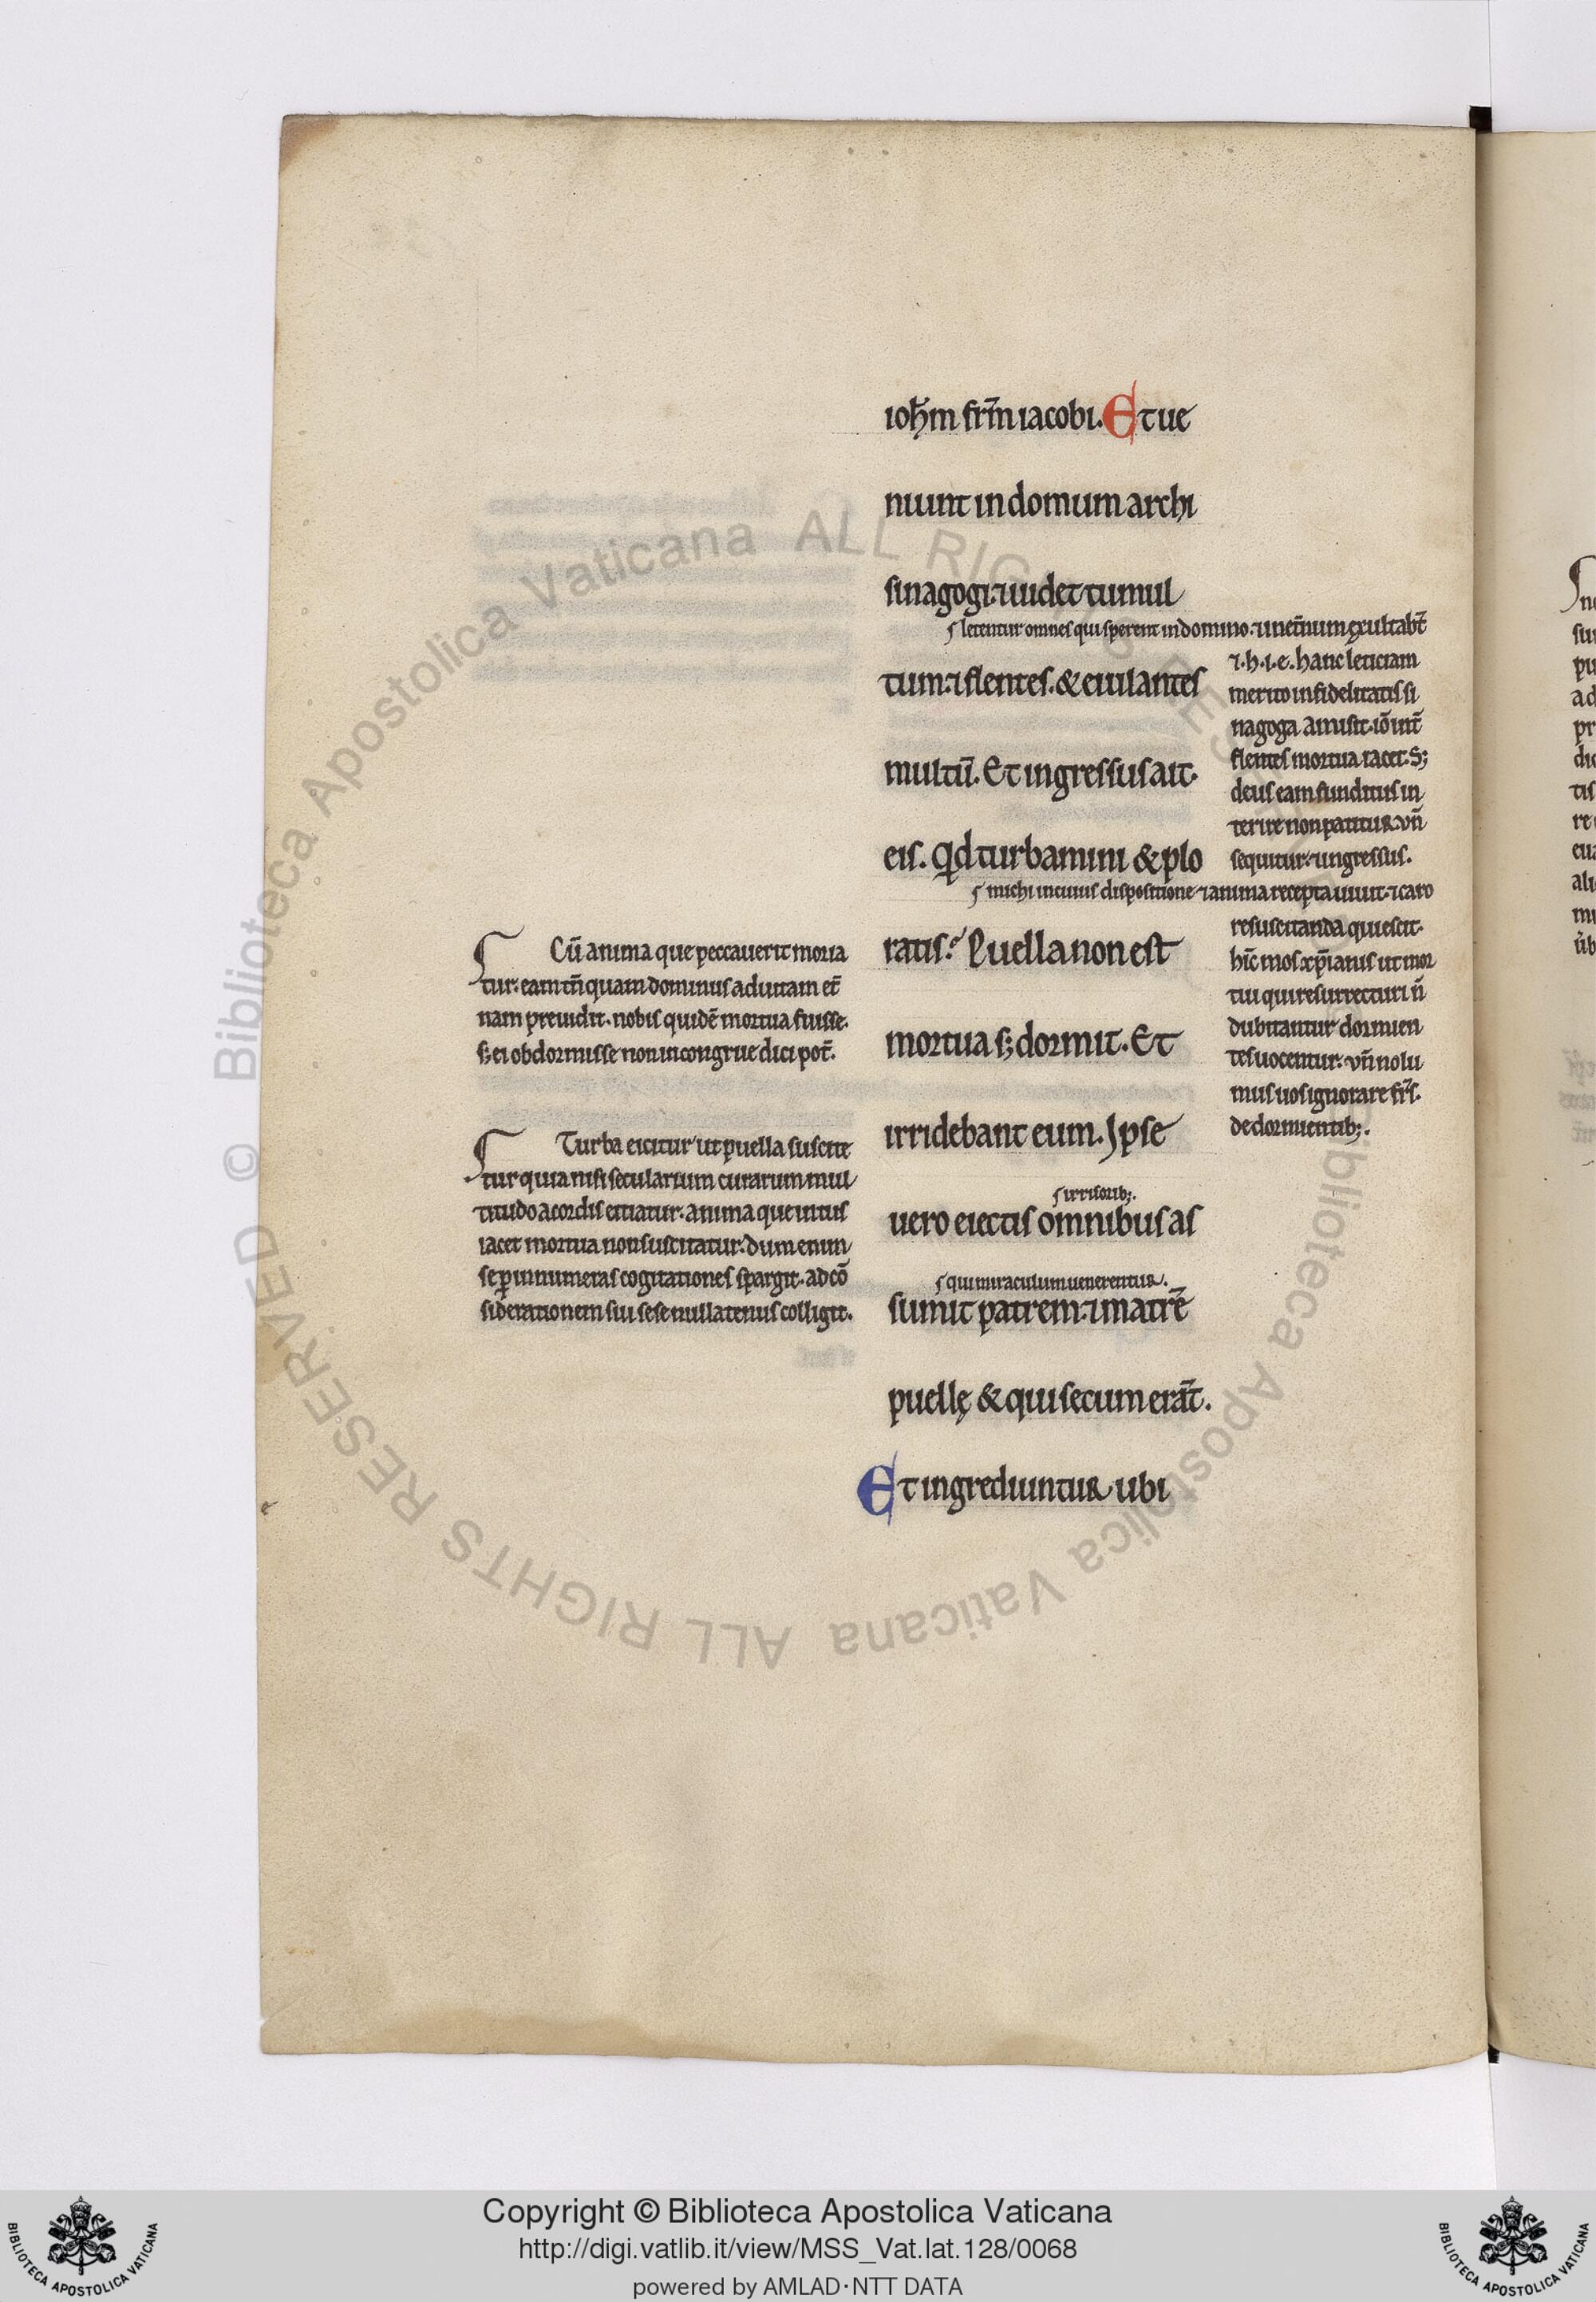 ioh̄m fr̄m iacobi. Et ue
niunt in domum archi
sinagogi. ⁊ uidet tumul
letentur omnes qui sperent in domino. ⁊ in et̄num exultab̄t
tum. ⁊ flentes. & eiulantes
⁊.h.i.e. hanc leticiam
merito infidelitatis si
nagoga amisit. iō int̄
flentes mortua iacet. S;
deus eam funditus in
terire non patitur. vn̄
sequitur. ⁊ ingressus.
multū. Et ingressus ait.
eis. Qd turbamini & plo
michi in cuius dispositione ⁊ anima recepta uiuit. ⁊ caro
resuscitanda quiescit.
hīc mos xp̄ianus ut mor
tui qui resurrecturi n̄
dubitantur dormien
tes uocentur. vn̄ nolu
mus uos ignorare fr̄s.
de dormientib;.
ratis? Puella non est
mortua s; dormit. Et
irridebant eum. Ipse
irrisorib;.
uero eiectis omnibus as
qui miraculum uenerentur.
sumit patrem. ⁊ matrē
puellę & qui secum erāt.
Et ingrediuntur ubi
Cū anima que peccauerit moria
tur. eam tn̄ quam dominus ad uitam et̄
nam preuidit. nobis quidē mortua fuisse.
s; ei obdormisse non incongrue dici pot̄.
Turba eicitur ut puella suscite
tur quia nisi secularium curarum mul
titudo a cordis eiciatur. anima que intus
iacet mortua non suscitatur. dum enim
se per innumeras cogitationes spargit. ad cō
siderationem sui sese nullatenus colligit.
© Biblioteca Apostolica Vaticana ALL RIGHTS RESERVED
© Biblioteca Apostolica Vaticana ALL RIGHTS RESERVED
Copyright © Biblioteca Apostolica Vaticana
http://digi.vatlib.it/view/MSS_Vat.lat.128/0068
powered by AMLAD·NTT DATA
BIBLIOTECA APOSTOLICA VATICANA
BIBLIOTECA APOSTOLICA VATICANA